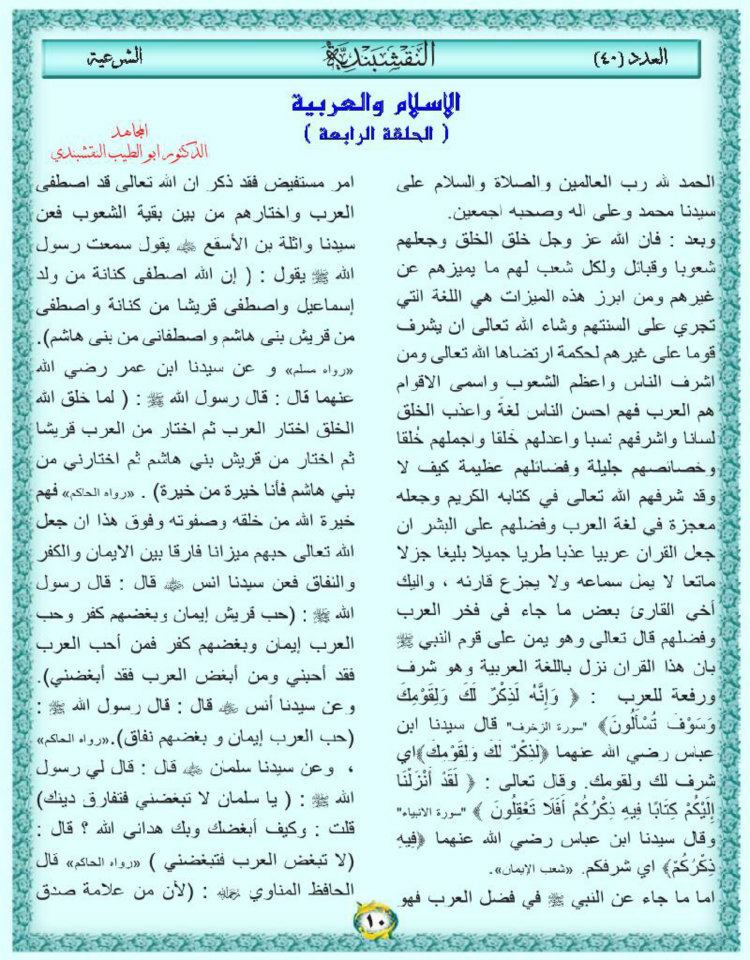 العدد (٤٠)
النقشبندية
الشرعية
الاسلام والعربية
( الحلقة الرابعة )
المجاهد
الدكتور ابو الطيب النقشبندي
الحمد لله رب العالمين والصلاة والسلام على
سيدنا محمد وعلى اله وصحبه اجمعين.
وبعد : فان الله عز وجل خلق الخلق وجعلهم
شعوبا وقبائل ولكل شعب لهم ما يميزهم عن
غيرهم ومن ابرز هذه الميزات هي اللغة التي
تجري على السنتهم وشاء الله تعالى ان يشرف
قوما على غيرهم لحكمة ارتضاها الله تعالى ومن
اشرف الناس واعظم الشعوب واسمى الاقوام
هم العرب فهم احسن الناس لغةً واعذب الخلق
لسانا واشرفهم نسبا واعدلهم خَلقا واجملهم خُلقا
وخصائصهم جليلة وفضائلهم عظيمة كيف لا
وقد شرفهم الله تعالى في كتابه الكريم وجعله
معجزة في لغة العرب وفضلهم على البشر ان
جعل القران عربيا عذبا طريا جميلا بليغا جزلا
ماتعا لا يمل سماعه ولا يجزع قارئه ، واليك
أخي القارئ بعض ما جاء في فخر العرب
وفضلهم قال تعالى وهو يمن على قوم النبي ﷺ
بان هذا القران نزل باللغة العربية وهو شرف
ورفعة للعرب : ﴿ وَإِنَّهُ لَذِكْرٌ لَكَ وَلِقَوْمِكَ
وَسَوْفَ تُسْأَلُونَ﴾ "سورة الزخرف" قال سيدنا ابن
عباس رضي الله عنهما ﴿لَذِكْرٌ لَكَ وَلِقَوْمِكَ﴾اي
شرف لك ولقومك. وقال تعالى : ﴿ لَقَدْ أَنْزَلْنَا
إِلَيْكُمْ كِتَابًا فِيهِ ذِكْرُكُمْ أَفَلَا تَعْقِلُونَ ﴾ "سورة الانبياء"
وقال سيدنا ابن عباس رضي الله عنهما ﴿فِيهِ
ذِكْرُكُمْ﴾ اي شرفكم. «شعب الإيمان».
اما ما جاء عن النبي ﷺ في فضل العرب فهو
امر مستفيض فقد ذكر ان الله تعالى قد اصطفى
العرب واختارهم من بين بقية الشعوب فعن
سيدنا واثلة بن الأسقع ﷺ يقول سمعت رسول
الله ﷺ يقول : ( إن الله اصطفى كنانة من ولد
إسماعيل واصطفى قريشا من كنانة واصطفى
من قريش بنى هاشم واصطفانى من بنى هاشم).
«رواه مسلم» و عن سيدنا ابن عمر رضي الله
عنهما قال : قال رسول الله ﷺ : ( لما خلق الله
الخلق اختار العرب ثم اختار من العرب قريشا
ثم اختار من قريش بني هاشم ثم اختارني من
بني هاشم فأنا خيرة من خيرة) . «رواه الحاكم» فهم
خيرة الله من خلقه وصفوته وفوق هذا ان جعل
الله تعالى حبهم ميزانا فارقا بين الايمان والكفر
والنفاق فعن سيدنا انس قال : قال رسول
الله ﷺ : (حب قريش إيمان وبغضهم كفر وحب
العرب إيمان وبغضهم كفر فمن أحب العرب
فقد أحبني ومن أبغض العرب فقد أبغضني).
وعن سيدنا أنس قال : قال رسول الله ﷺ :
(حب العرب إيمان و بغضهم نفاق).«رواه الحاكم»
، وعن سيدنا سلمان قال : قال لي رسول
الله ﷺ : ( يا سلمان لا تبغضني فتفارق دينك)
قلت : وكيف أبغضك وبك هداني الله ؟ قال :
(لا تبغض العرب فتبغضني ) «رواه الحاكم» قال
الحافظ المناوي : (لأن من علامة صدق
١٠